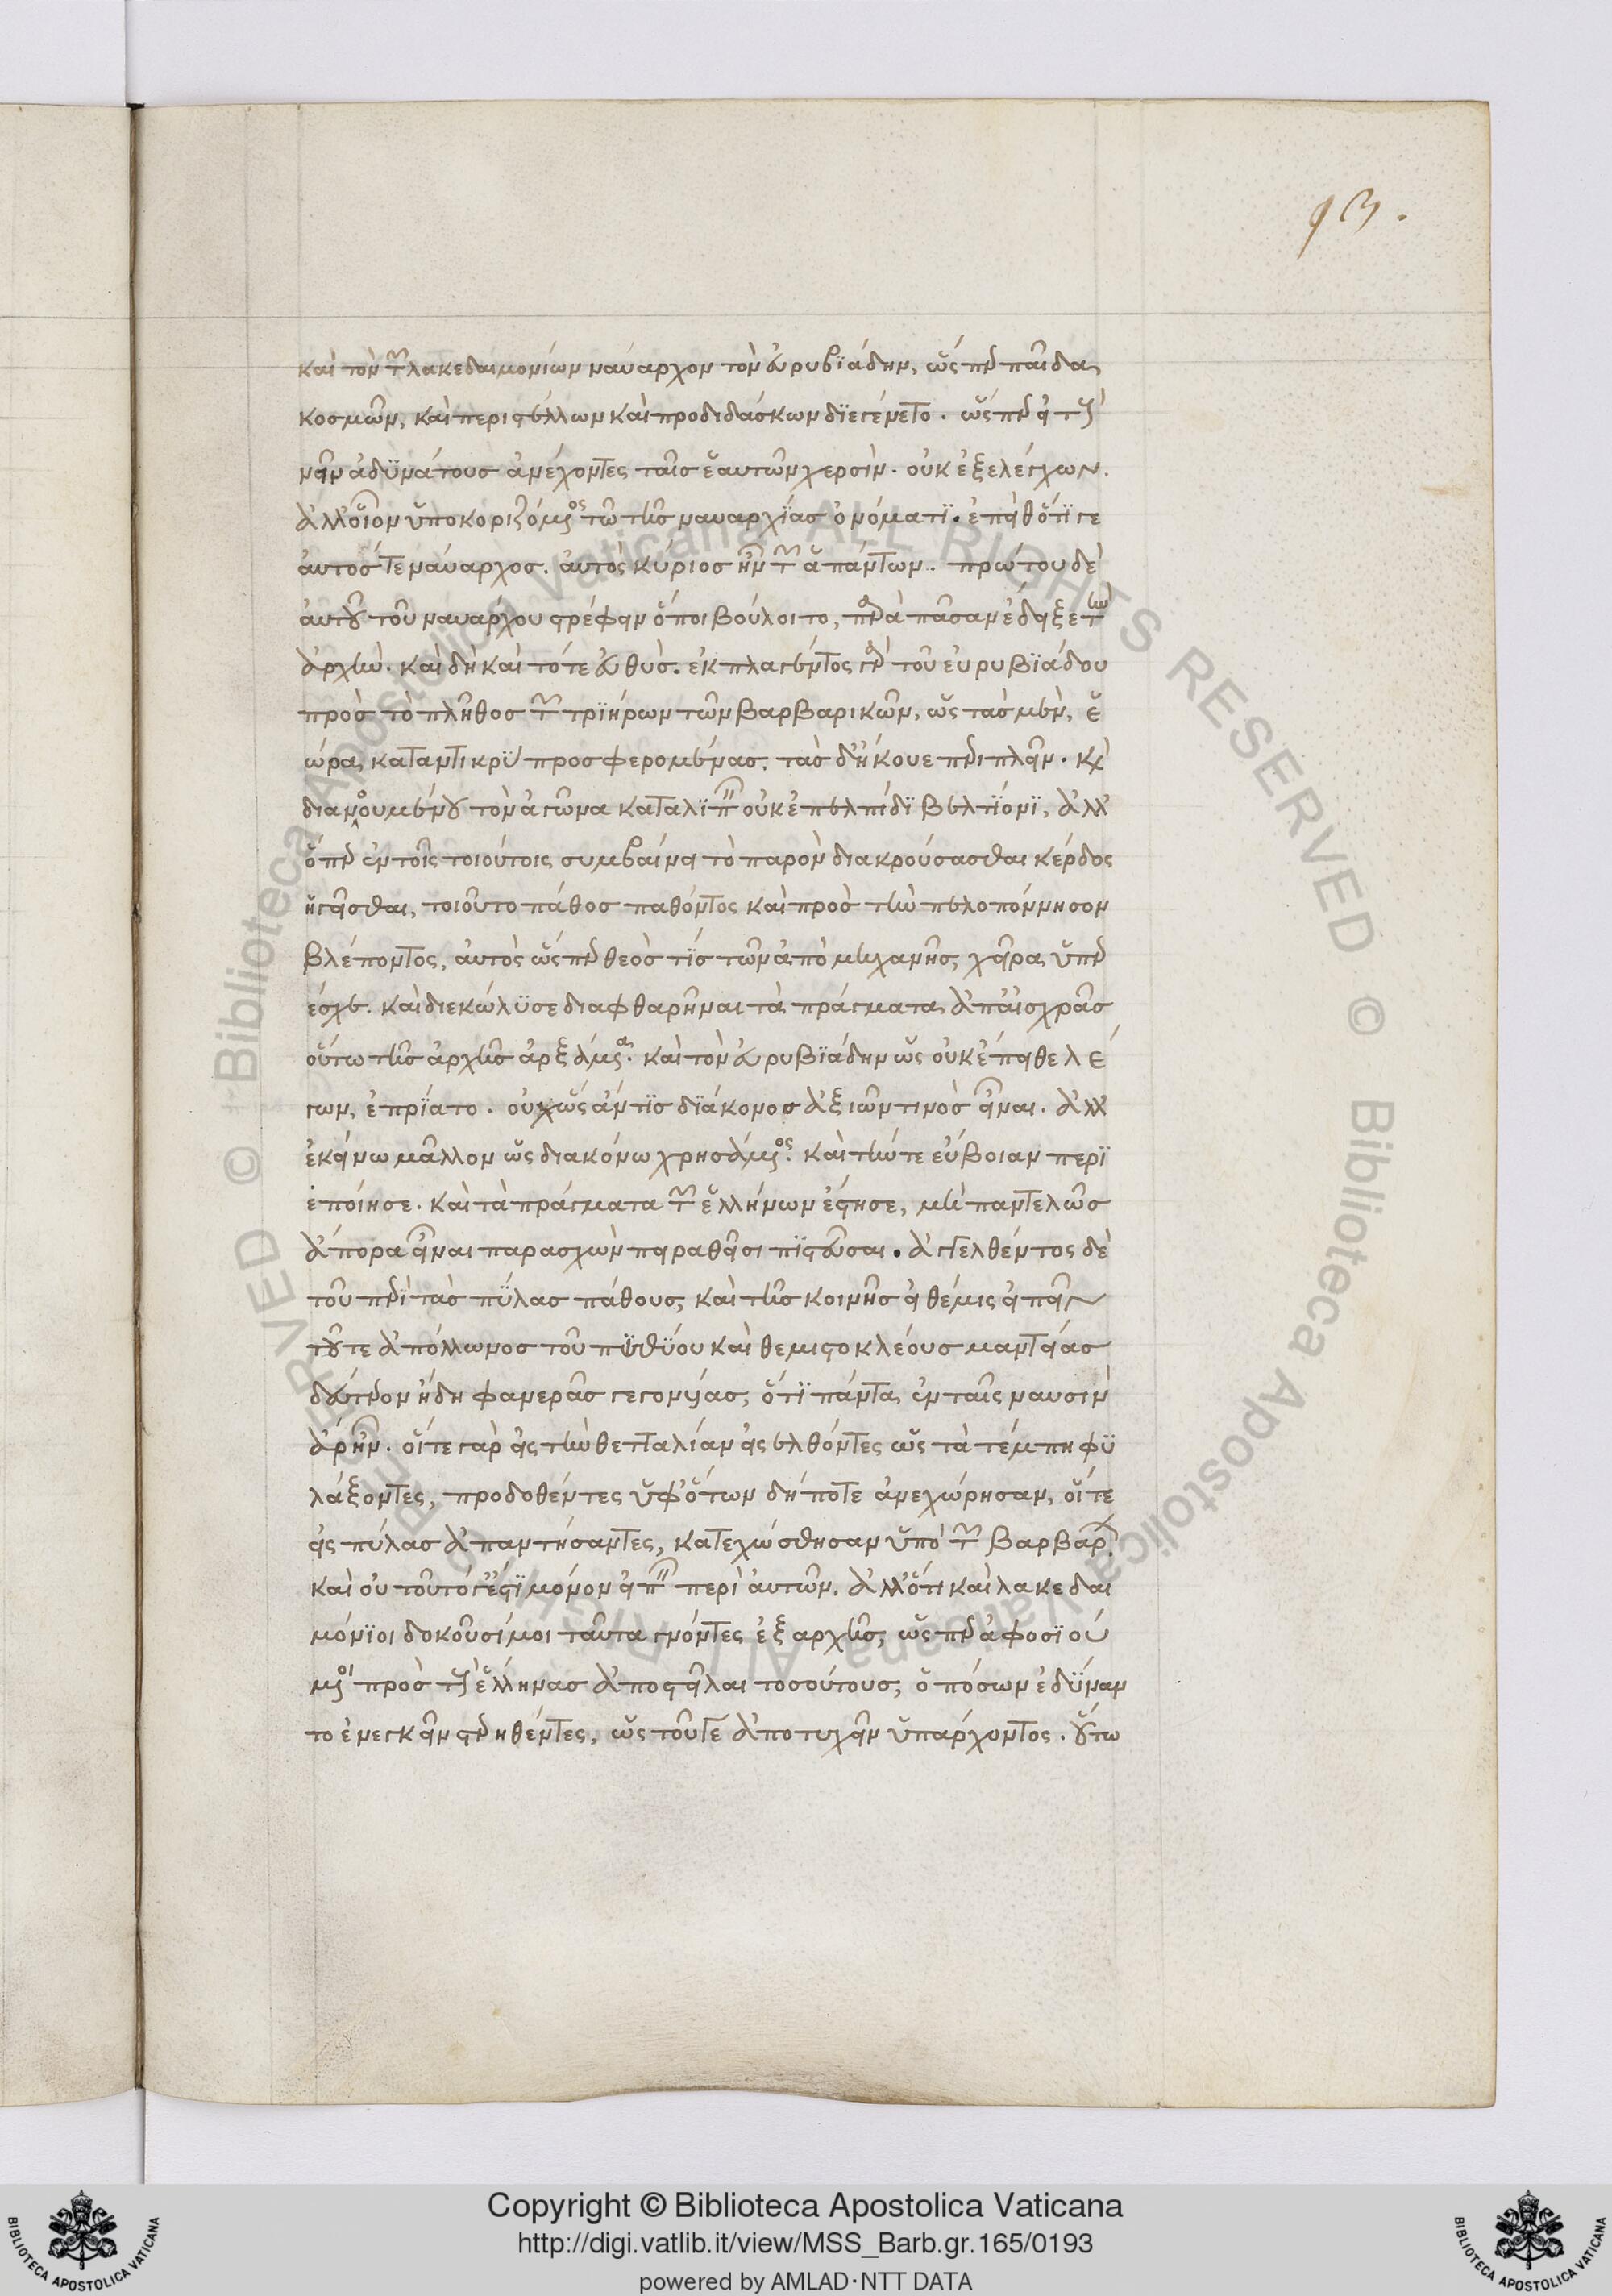 93.
καὶ τὸν τῶν λακεδαιμονίων ναύαρχον τὸν εὐρυβϊάδην, ὥσπερ παῖδα
κοσμῶν, καὶ περιστέλλων καὶ προδιδάσκων διεγένετο. ὥσπερ εἰ τοὺς
νεῖν ἀδϋνάτους ἀνέχοντες ταῖς ἑαυτῶν χερσὶν. οὐκ ἐξελέγχων.
ἀλλ' οἷον ὑποκοριζόμενος τῶ τῆς ναυαρχΐας ὀνόματϊ. ἐπεὶ θ' ὅτϊ γε
αὐτός τε ναύαρχος. αὐτὸς κύριος ἦν τῶν ἁπάντων. πρώτου δὲ
αὐτοῦ τοῦ ναυάρχου στρέφειν ὅποι βούλοιτο, παρὰ πᾶσαν ἔδειξε τὴν
ἀρχὴν. καὶ δὴ καὶ τότε εὐθὺς. ἐκπλαγέντος γὰρ τοῦ εὐρυβϊάδου
πρὸς τὸ πλῆθος τῶν τρϊήρων τῶν βαρβαρικῶν, ὡς τὰς μὲν, ἑ
ώρα καταντικρϋ προσφερομένας. τὰς δ' ἤκουε περιπλεῖν. καὶ
διανοουμένου τὸν ἀγῶνα καταλϊπεῖν οὐκ ἐπ' ἐλπίδϊ βελτϊόνϊ, ἀλλ'
ὅπερ ἐν τοῖς τοιούτοις συμβαίνει τὸ παρὸν διακρούσασθαι κέρδος
ἡγεῖσθαι, τοιοῦτο πάθος παθόντος καὶ πρὸς τὴν πελοπόννησον
βλέποντος, αὐτὸς ὥσπερ θεὸς τϊς τῶν ἀπὸ μηχανῆς, χεῖρα ὑπερ
έσχε. καὶ διεκώλϋσε διαφθαρῆναι τὰ πράγματα ἀπ' αἰσχρᾶς
οὕτω τῆς ἀρχῆς ἀρξάμενα. καὶ τὸν εὐρυβϊάδην ὡς οὐκ ἔπειθε λέ
γων, ἐπρϊατο. οὐχ ὡς ἄν τϊς δϊάκονος ἀξιῶν τινὸς εἶναι. ἀλλ'
ἐκείνω μᾶλλον ὡς διακόνω χρησάμενος. καὶ τήν τε εὔβοιαν περϊ
εποίησε. καὶ τὰ πράγματα τῶν ἑλλήνων ἔστησε, μὴ παντελῶς
ἄπορα εἶναι παρασχὼν πειραθεῖσι πϊστεῦσαι. ἀγγελθέντος δὲ
τοῦ περϊ τὰς πύλας πάθους, καὶ τῆς κοινῆς εἰ θέμις εἰπεῖν
τοῦ τε ἀπόλλωνος τοῦ πϋθϋου καὶ θεμιστοκλέους μαντείας
δεύτερον ἤδη φανερᾶς γεγονυίας, ὅτϊ πάντα ἐν ταῖς ναυσὶν
ἄρ' ἦν. οἵ τε γὰρ εἰς τὴν θετταλίαν εἰσελθόντες ὡς τὰ τέμπη φϋ
λάξοντες, προδοθέντες ὑφ' ὅτων δήποτε ἀνεχώρησαν, οἵ τε
εἰς πύλας ἀπαντήσαντες, κατεχώσθησαν ὑπὸ τῶν βαρβάρων.
καὶ οὐ τοῦτό γ' ἔστϊ μόνον εἰπεῖν περὶ αὐτῶν. ἀλλ' ὅτι καὶ λακεδαι
μόνϊοι δοκοῦσί μοι ταῦτα γνόντες ἐξ αρχῆς, ὥσπερ ἀφοσϊού
μενοι πρὸς τοὺς ἕλληνας ἀποστεῖλαι τοσούτους, ὁπόσων ἐδϋναν
το ἐνεγκεῖν στερηθέντες, ὡς τοῦ γε ἀποτυχεῖν ὑπάρχοντος. οὕτω
Copyright © Biblioteca Apostolica Vaticana
http://digi.vatlib.it/view/MSS_Barb.gr.165/0193
powered by AMLAD·NTT DATA